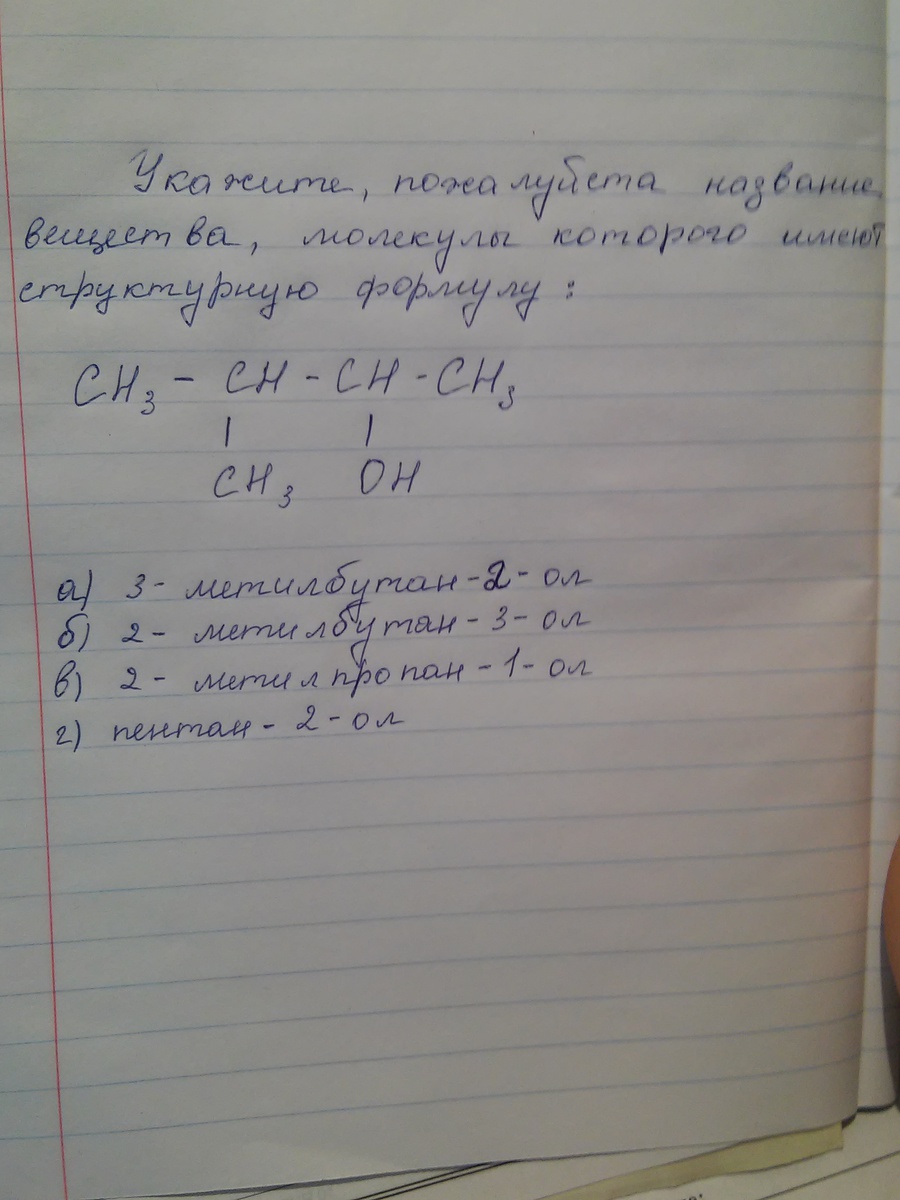 Укажите, пожалуйста название
вещества, молекулы которого имеют
структурную формулу:
CH₃ - CH - CH - CH₃
| |
CH₃ OH
а) 3- метилбутан-2- ол
б) 2- метилбутан-3- ол
в) 2- метилпропан-1- ол
г) пентан- 2- ол